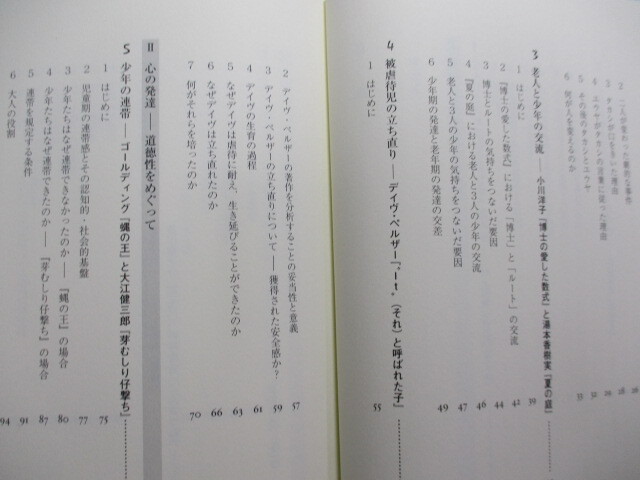 2 二人が変わった
3 タカシが口をきいた理由
4 エウヤがタカシの言葉に従った理由
5 その後のタカシとエウヤ
6 何が人を変えるのか
3 老人と少年の交流——小川洋子『博士の愛した数式』と湯本香樹実『夏の庭』 39
1 はじめに 39
2 『博士の愛した数式』における「博士」と「ルート」の交流 42
3 博士とルートの気持ちをつないだ要因 44
4 『夏の庭』における老人と3人の少年の交流 46
5 老人と3人の少年の気持ちをつないだ要因 47
6 少年期の発達と老年期の発達の交差 49
4 被虐待児の立ち直り——デイヴ・ペルザー『"It"(それ)と呼ばれた子』 55
1 はじめに 55
2 デイヴ・ペルザーの著作を分析することの妥当性と意義 57
3 デイヴ・ペルザーの立ち直りについて——獲得された安全感か? 59
4 デイヴの生育の過程 61
5 なぜデイヴは虐待に耐え、生き延びることができたのか 63
6 なぜデイヴは立ち直れたのか 66
7 何がそれらを培ったのか 70
II 心の発達——道徳性をめぐって
5 少年の連帯——ゴールディング『蠅の王』と大江健三郎『芽むしり仔撃ち』 75
1 はじめに 75
2 児童期の連帯感とその認知的・社会的基盤 77
3 少年たちはなぜ連帯できなかったのか——『蠅の王』の場合 80
4 少年たちはなぜ連帯できたのか——『芽むしり仔撃ち』の場合 87
5 連帯を規定する条件 91
6 大人の役割 94